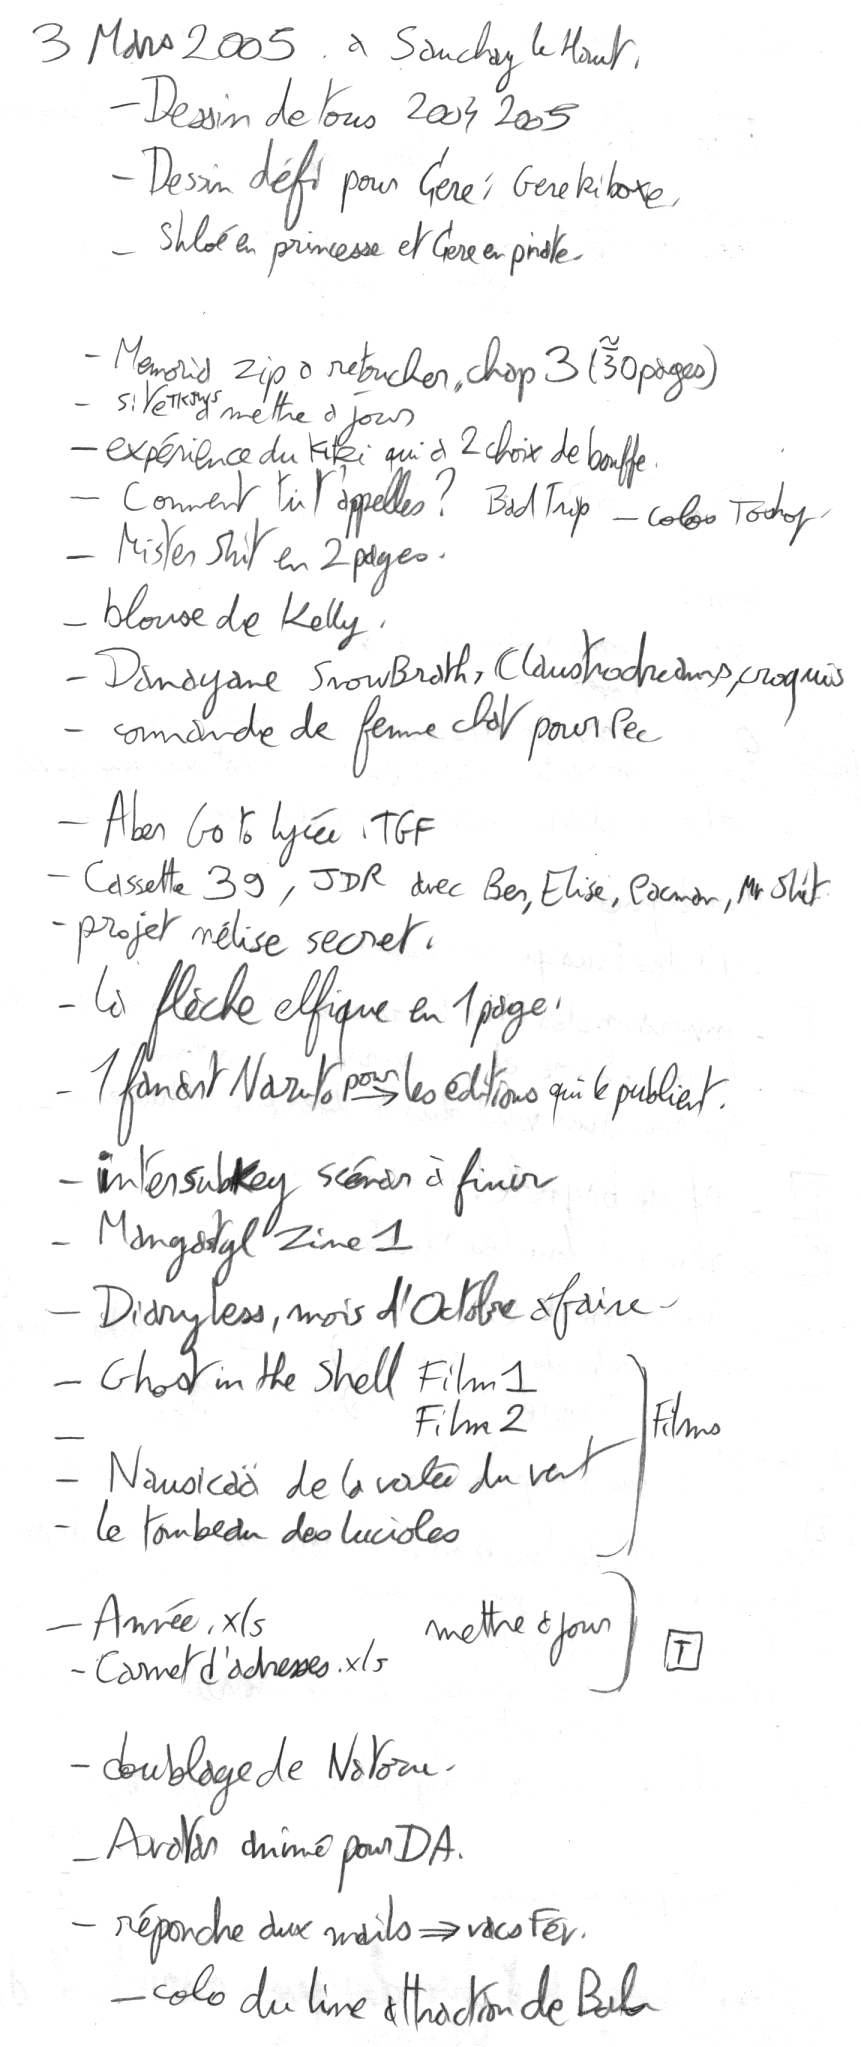 3 Mars 2005. à Sauchay le Haut.
- Dessin de tous 2004 2005
- Dessin défi pour Géré; Gere kiboxe.
- Shloé en princesse et Gere en pirate.
- Memorid zip à retoucher, chap 3 (≈30 pages)
- site à mettre à jours
- expérience du kiki qui à 2 choix de bouffe.
- Comment tu t'appelles? Bad Trip - colos Toshop
- Mister Shit en 2 pages.
- blouse de Kelly.
- Danayane SnowBrath, Claustrodreams, croquis
- commande de femme chat pour Pec
- Aben Go to lycée. TGF
- Cassette 39, JDR avec Ben, Elise, Pacman, Mr Shit
- projet mélise secret.
- la flèche elfique en 1 page.
- 1 fanart Naruto pour → les éditions qui le publient.
- intersubkey scénar à finir
- Mangastyl' Zine 1
- Diaryless, mois d'Octobre à faire -
- Ghost in the Shell Film 1
- Film 2
Films
- Nausicaä de la vallée du vent
- le tombeau des lucioles
- Année.xls mettre à jour
- Carnet d'adresses.xls
T
- doublage de Natozu.
- Avatar animé pour DA.
- répondre aux mails ⇒ vacs Fév.
- colo du line attraction de